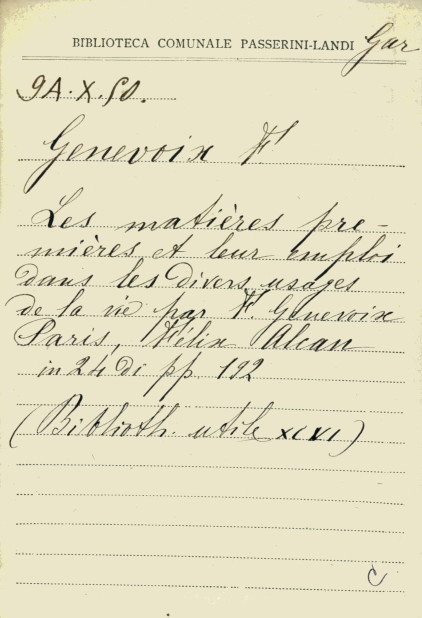 BIBLIOTECA COMUNALE PASSERINI-LANDI Gar
9A.X.50.
Genevoix F
Les matières pre-
mières et leur emploi
dans les divers usages
de la vie par F. Genevoix
Paris, Félix Alcan
in 24 di pp. 192
(Biblioth. utile XCVI)
C